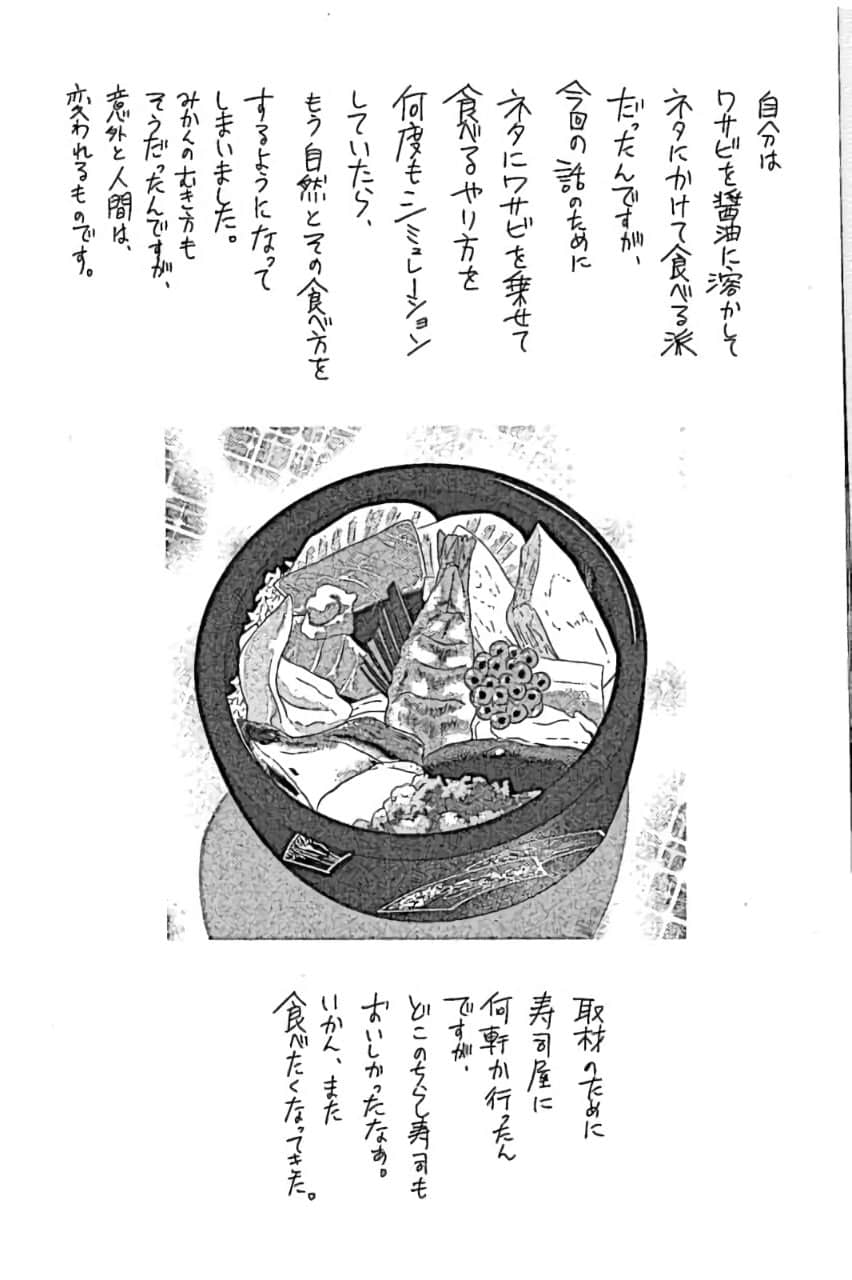 自分は
ワサビを醤油に溶かして
ネタにかけて食べる派
だったんですが、
今回の話のために
ネタにワサビを乗せて
食べるやり方を
何度もシミュレーション
していたら、
もう自然とその食べ方を
するようになって
しまいました。
みかんのむき方も
そうだったんですが、
意外と人間は、
変われるものです。
取材のために
寿司屋に
何軒か行ったん
ですが、
どこのちらし寿司も
おいしかったなぁ。
いかん、また
食べたくなってきた。